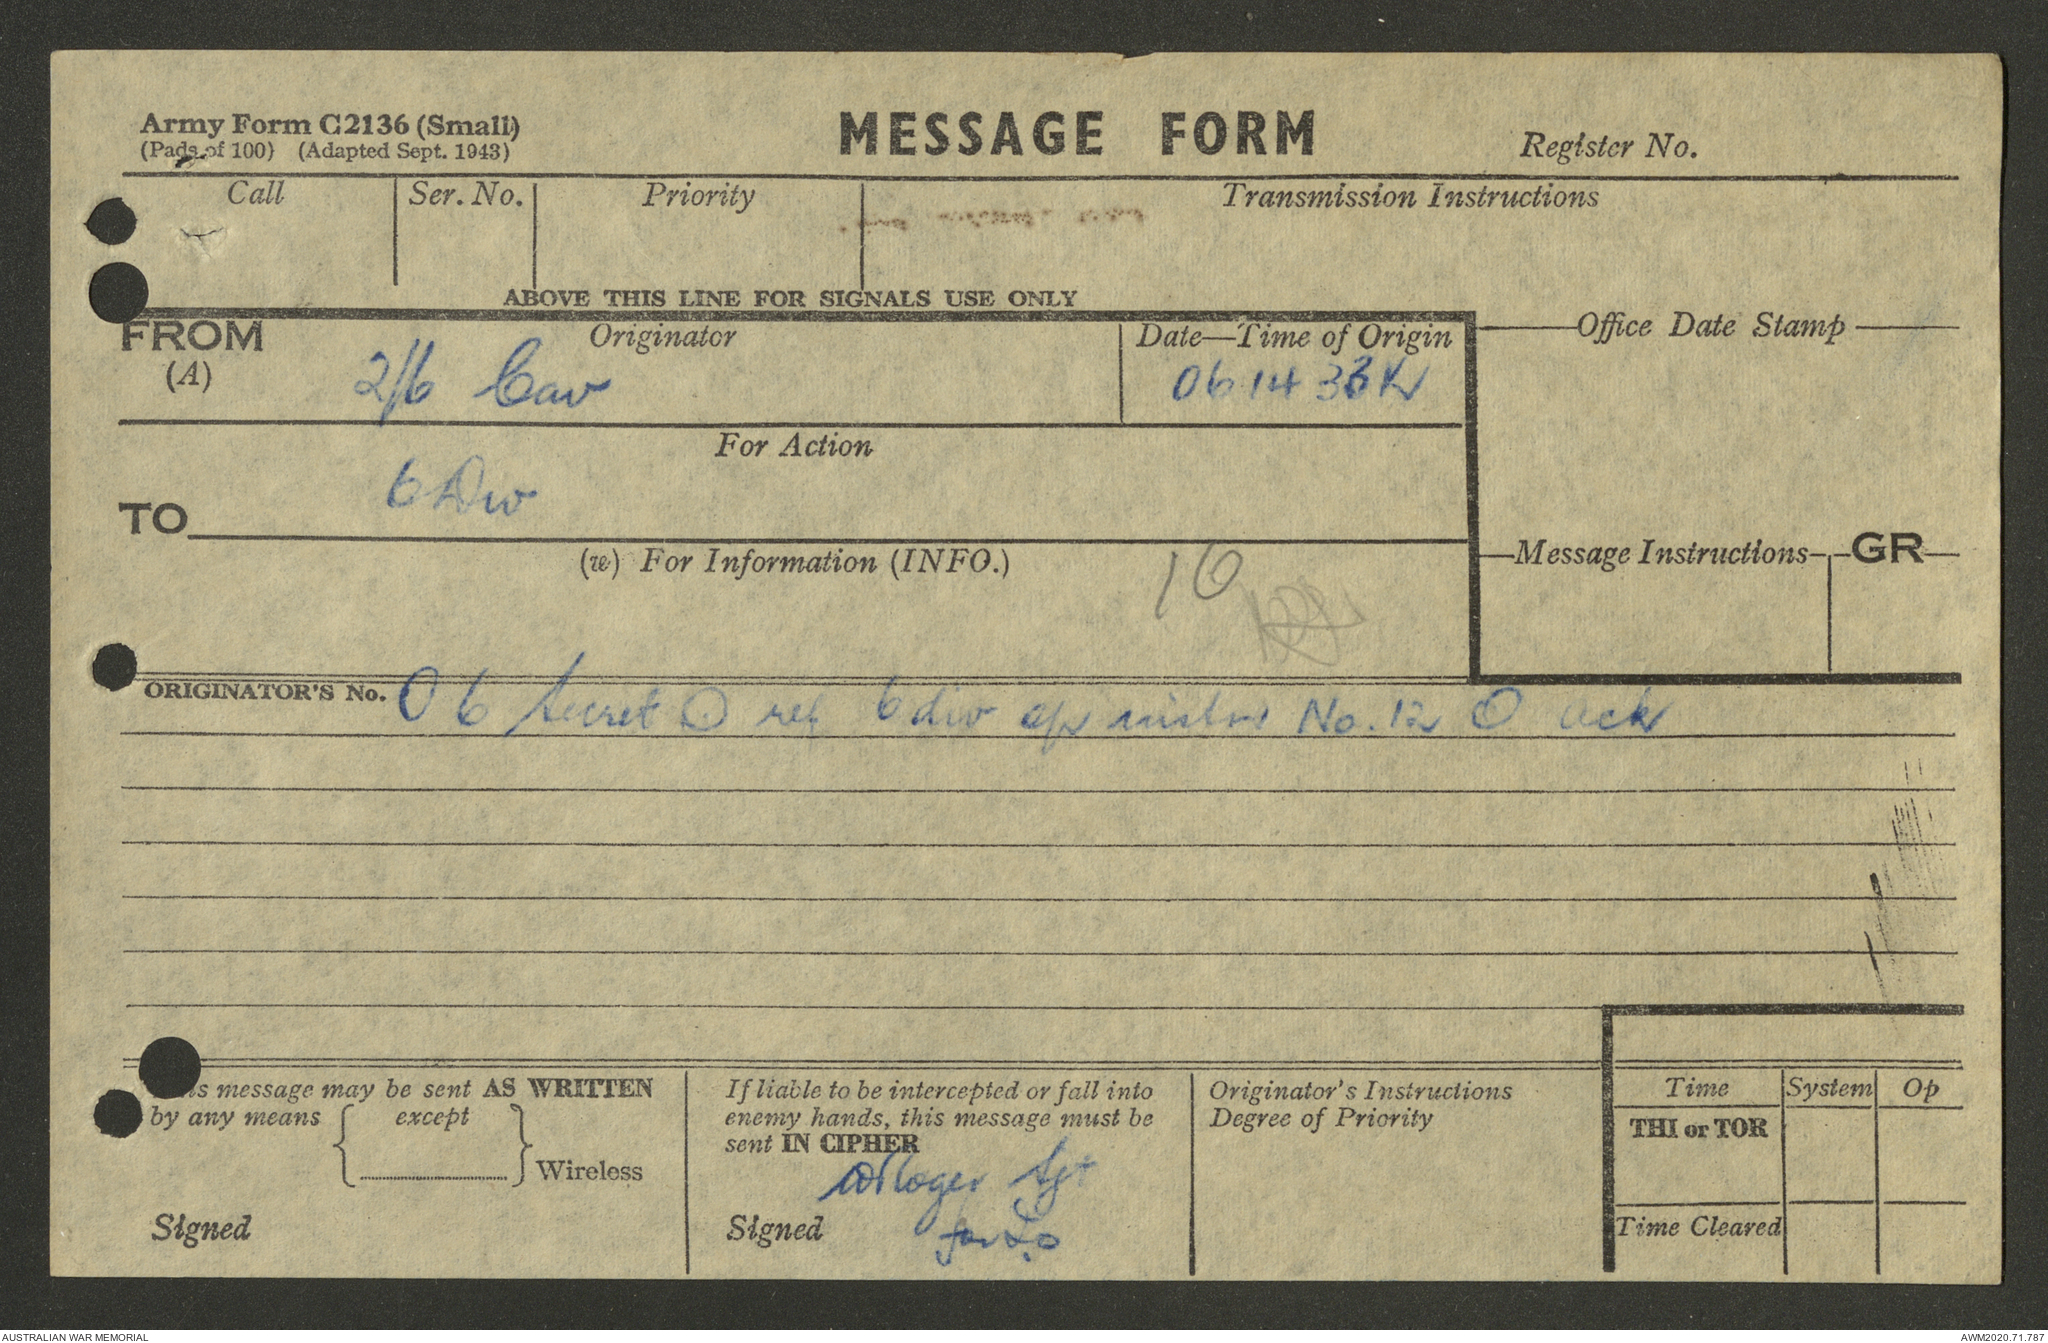 Army Form C2136 (Small)
(Pads of 100) (Adapted Sept. 1943)
MESSAGE FORM
Register No.
Call
Ser. No.
Priority
Transmission Instructions
ABOVE THIS LINE FOR SIGNALS USE ONLY
FROM
(A)
Originator
2/6 Cav
Date—Time of Origin
Office Date Stamp
For Action
6 Div
TO
(w) For Information (INFO.)
16
Message Instructions
GR
ORIGINATOR'S No. O 6 Secret ⊙ ref 6 div op instn No. 12 ⊙ ack
This message may be sent AS WRITTEN
by any means except
Wireless
Signed
If liable to be intercepted or fall into
enemy hands, this message must be
sent IN CIPHER
Sgt
Signed for
Originator's Instructions
Degree of Priority
Time
System
Op
THI or TOR
Time Cleared
AUSTRALIAN WAR MEMORIAL
AWM2020.71.787